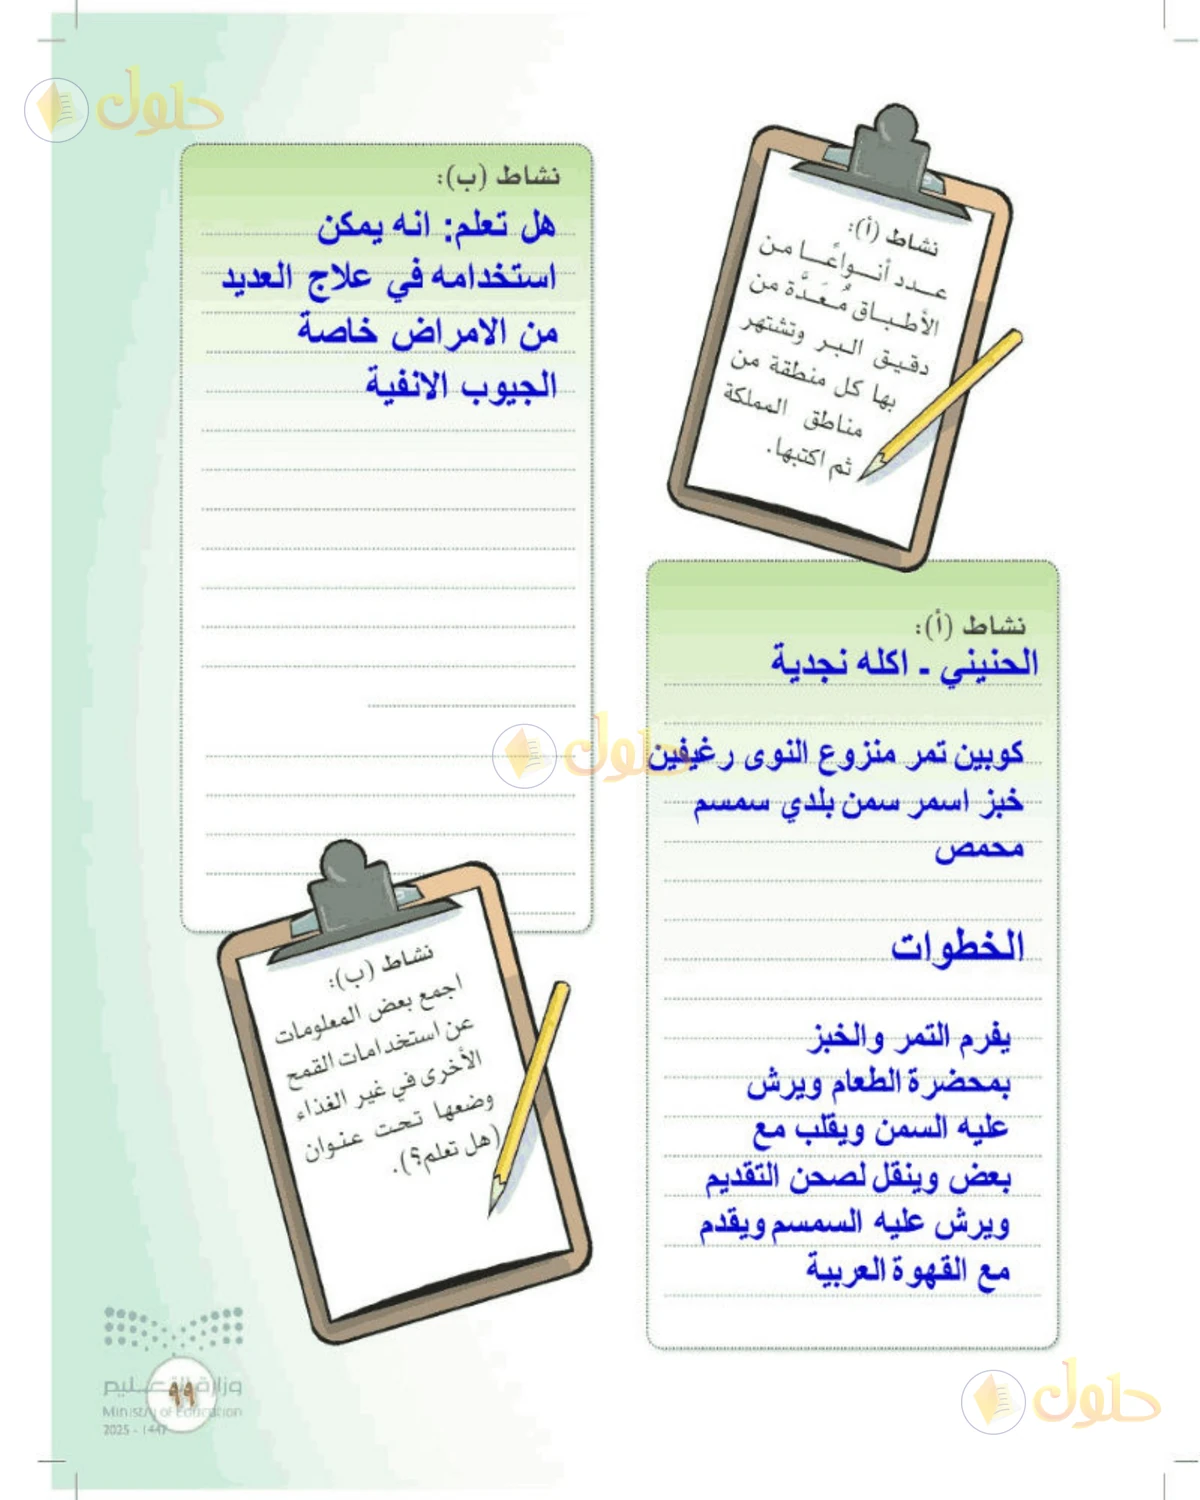 حلول
نشاط (أ):
عدد أنواعًا من
الأطباق مُعَدَّة من
دقيق البر وتشتهر
بها كل منطقة من
مناطق المملكة
ثم اكتبها.
نشاط (أ):
الحنيني - اكله نجدية
كوبين تمر منزوع النوى رغيفين
خبز اسمر سمن بلدي سمسم
محمص
الخطوات
يفرم التمر والخبز
بمحضرة الطعام ويرش
عليه السمن ويقلب مع
بعض وينقل لصحن التقديم
ويرش عليه السمسم ويقدم
مع القهوة العربية
نشاط (ب):
هل تعلم: انه يمكن
استخدامه في علاج العديد
من الامراض خاصة
الجيوب الانفية
حلول
نشاط (ب):
اجمع بعض المعلومات
عن استخدامات القمح
الأخرى في غير الغذاء
وضعها تحت عنوان
(هل تعلم؟).
وزارة التعليم
Ministry of Education
2025 - 1447
٩٩
حلول